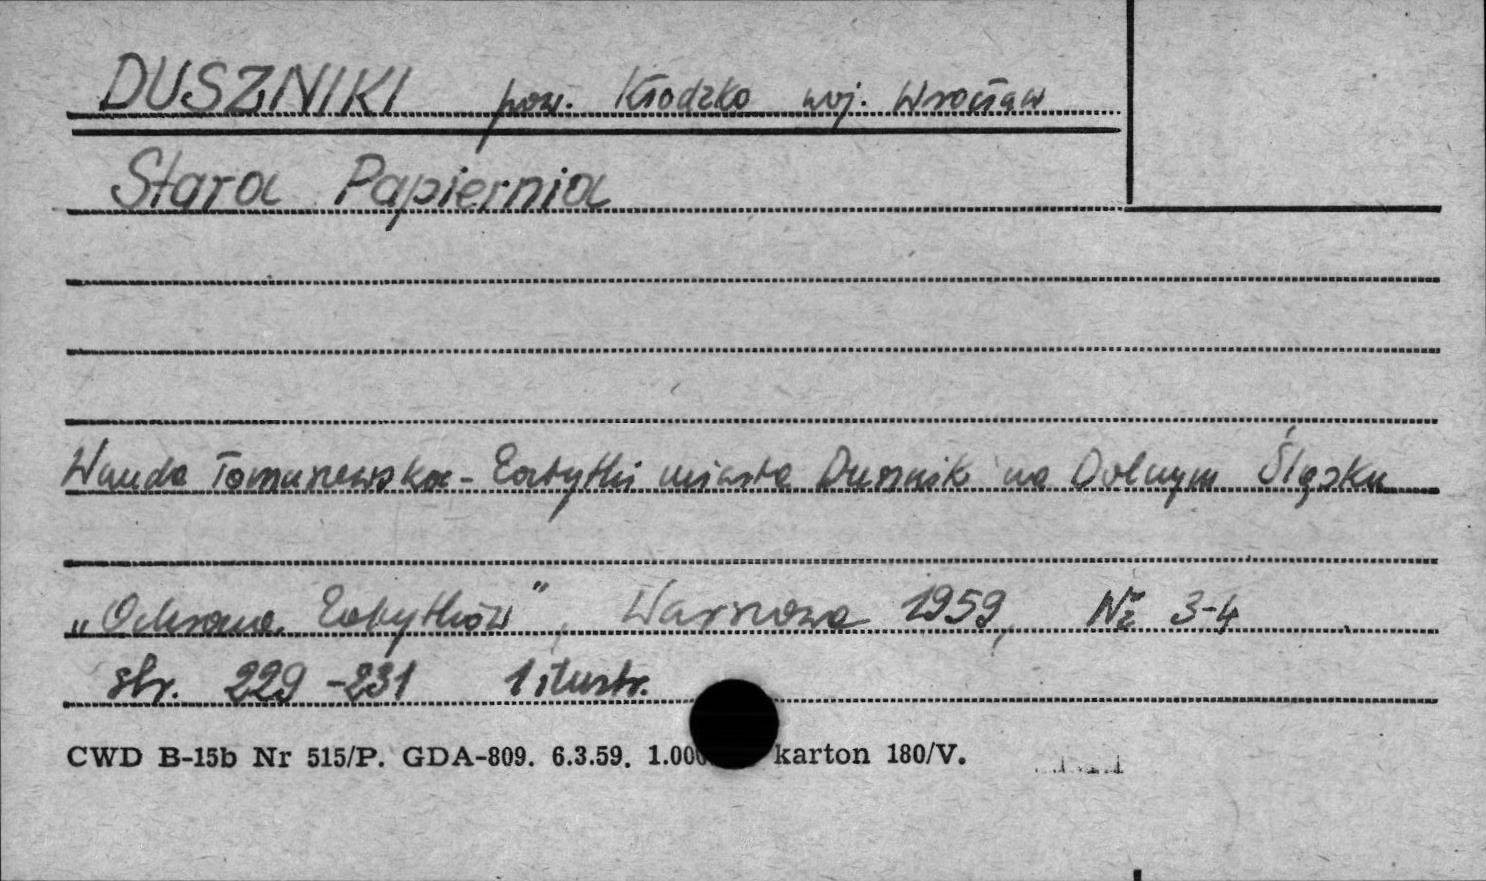 DUSZNIKI pow. Kłodzko woj. Wrocław
Stara Papiernia
Wanda Tomaszewska - Zabytki miasta Dusznik na Dolnym Śląsku
„Ochrona Zabytków", Warszawa 1959, Nr 3-4
str. 229-231 1 ilustr.
CWD B-15b Nr 515/P. GDA-809. 6.3.59. 1.000 karton 180/V.